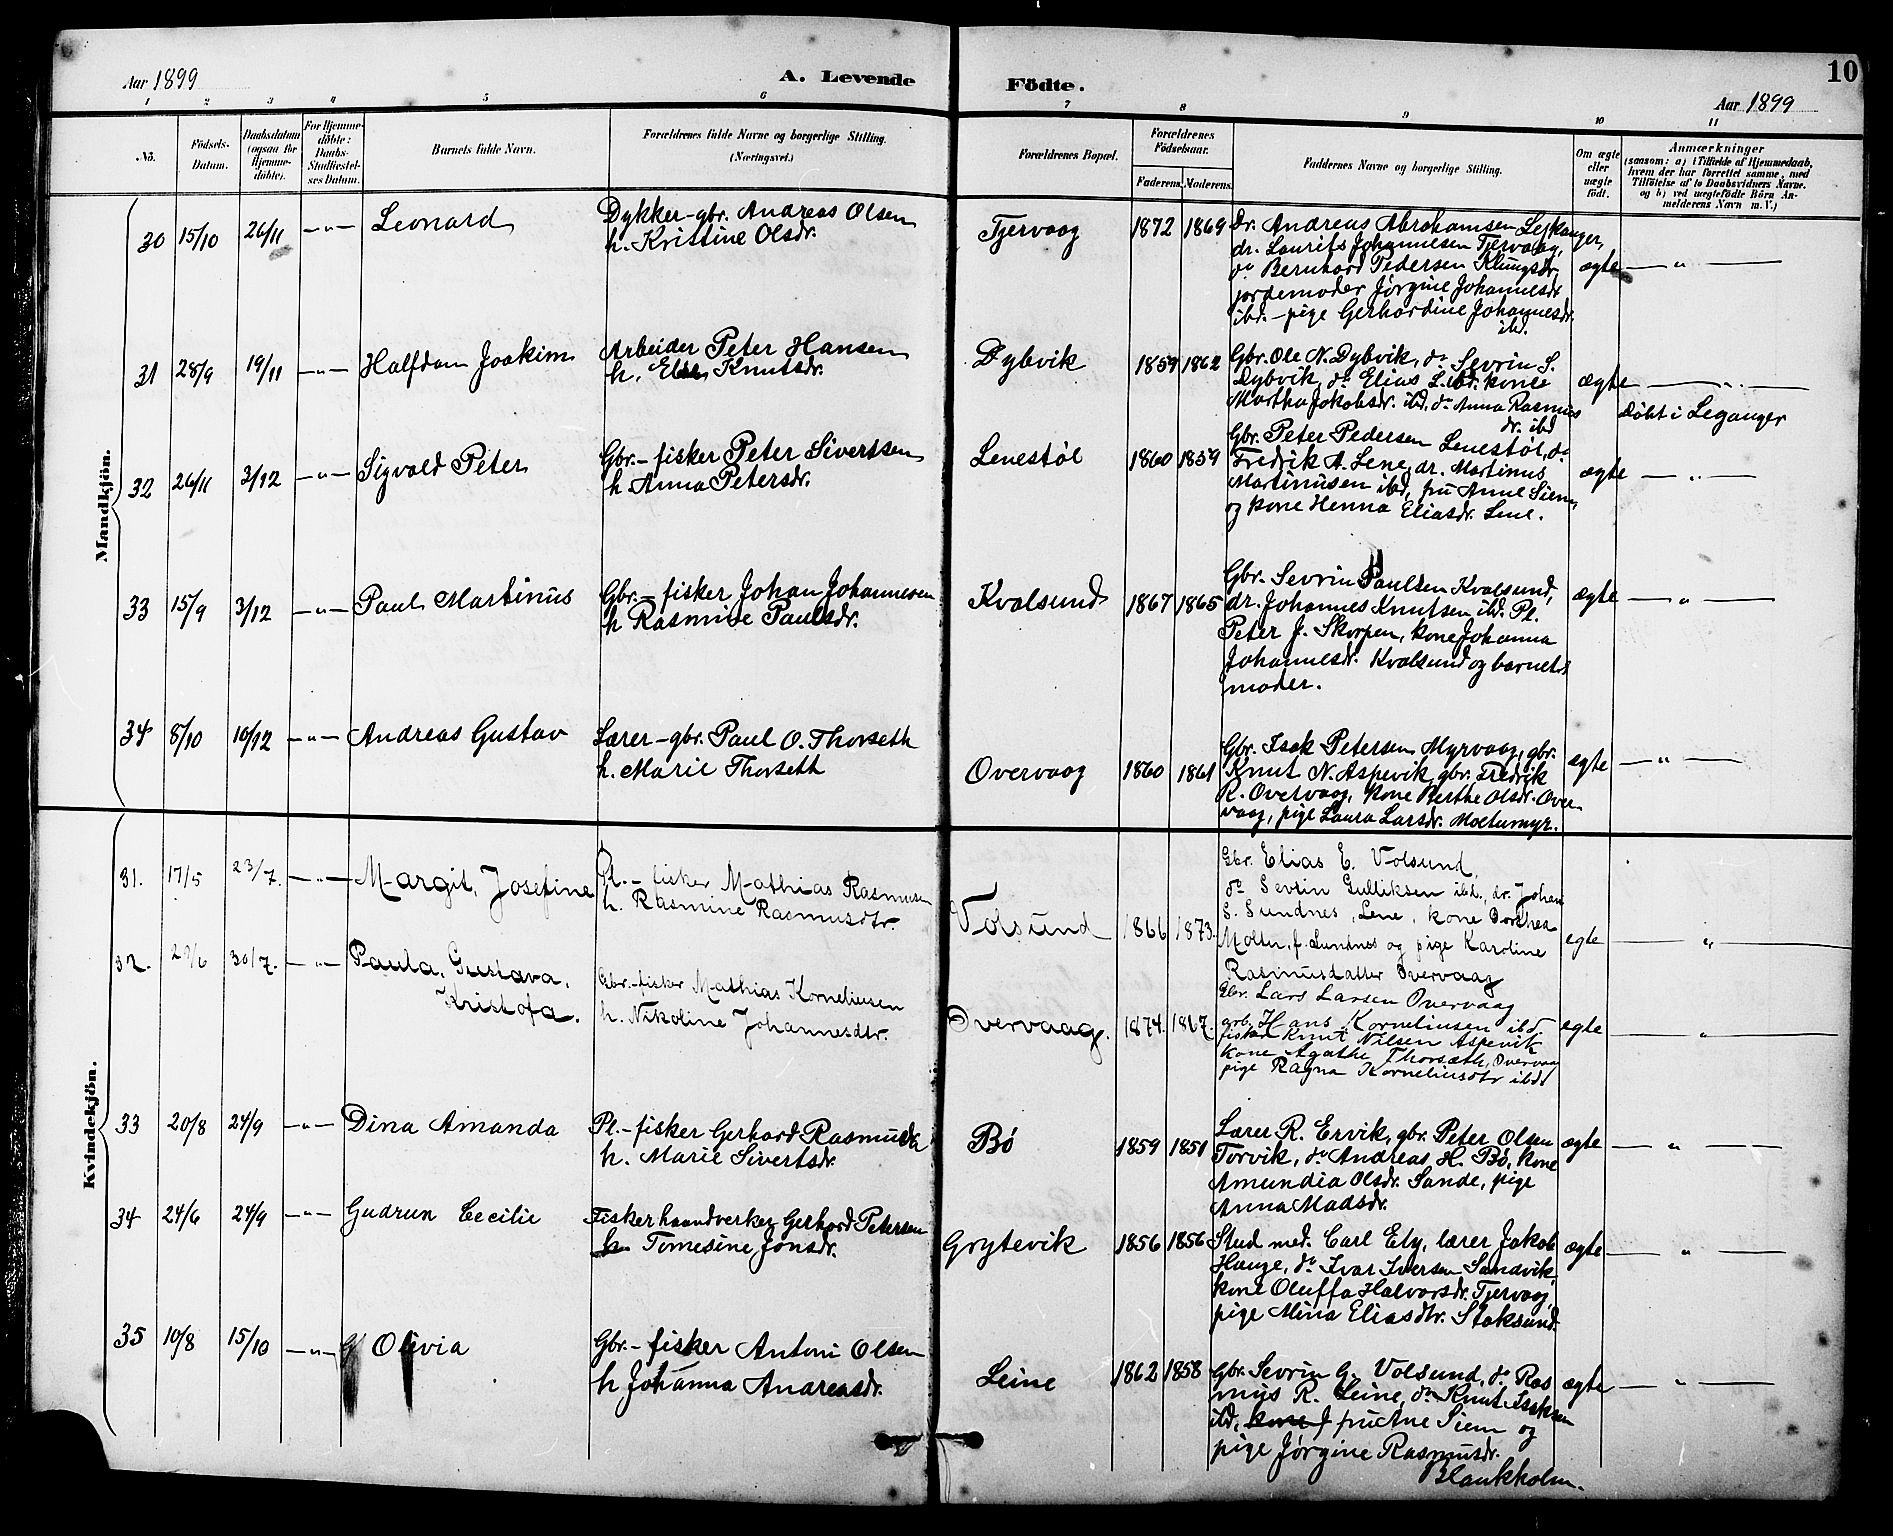 Aar 1899
A. Levende
Födte.
Aar 1899
10
1 2 3 4 5 6 7 8 9 10 11
No.
Födsels-
Datum.
Daabsdatum
(ogsaa for
Hjemme-
döbte).
For Hjemme-
döbte:
Daabs-
Stadfæstel-
ses Datum.
Barnets fulde Navn.
Forældrenes fulde Navne og borgerlige Stilling.
(Næringsvei.)
Forældrenes Bopæl.
Forældrenes
Födselsaar.
Faderens. Moderens.
Faddernes Navne og borgerlige Stilling.
Om ægte
eller
uægte
födt.
Anmærkninger
(saasom: a) i Tilfælde af Hjemmedaab,
hvem der har forrettet samme, med
Tilföielse af to Daabsvidners Navne.
og b) ved uægtefödte Börn An-
melderens Navn m. V.)
Mandkjön.
30 15/10 26/11 — " — Leonard
Dykker-gbr. Andreas Olsen
h. Kristine Olsdr.
Tjervaag 1872 1869
Dr. Andreas Abrahamsen Lejkanger,
dr. Laurits Johannesen Tjervaag,
do Bernhard Pedersen Klungsdr,
jordemoder Jørgine Johannesdr
ibd. - pige Gerhardine Johannesdr.
ibd.
ægte — " —
31 28/9 19/11 — " — Halfdan Joakim
Arbeider Peter Hansen
h. Knutsdr.
Dybvik 1859 1862
Gbr. Ole N. Dybvik, do Sevrin S.
Dybvik, do Elias L. ibd. kone
Martha Jakobsdr. ibd, do Anna Rasmus
dr. ibd
ægte — " —
Döbt i Leganger
32 26/11 3/12 — " — Sigvald Peter
Gbr. - fisker Peter Sivertsen
h Anna Petersdr.
Lenestøl 1860 1859
Gbr. Peter Pedersen Lenestøl, do
Fredrik A. Lene, dr. Martinus
Martinusen ibd, fru Anne Siem,
og kone Henna Eliasdr. Lene.
ægte — " —
33 15/9 3/12 — " — Paul Martinus
Gbr. - fisker Johan Johannesen
h Rasmine Paulsdr.
Kvalsund 1867 1865
Gbr. Sevrin Paulsen Kvalsund,
dr. Johannes Knutsen ibd. Pl.
Peter J. Skorpen, kone Johanna
Johannesdr. Kvalsund og barnets
moder.
ægte — " —
34 8/10 10/12 — " — Andreas Gustav
Lærer - gbr. Paul O. Thorseth
h. Marie Thorseth
Overvaag 1860 1861
Gbr. Isak Petersen Myrvaag, gbr.
Knut N. Aspevik, gbr. Fredrik
R. Overvaag, kone Berthe Olsdr. Over-
vaag, pige Laura Larsdr. Moltumyr.
egte — " —
Kvindekjön.
31. 17/5 23/7. — " — Margit, Josefine
Pl. - fisker Mathias Rasmusen
h. Rasmine Rasmusdtr.
Volsund 1866 1873.
Gbr. Elias E. Volsund,
do Sevrin Gulliksen ibd., dr. Johan
S. Sundnes, Lene, kone Dorthea
Molter, f. Sundnes og pige Karoline
Rasmusdatter Overvaag
egte — " —
32. 30/7. — " — Paula, Gustava,
Kristofa.
Gbr. - fisker Mathias Korneliusen
h. Nikoline Johannesdtr.
Overvaag. 1874.
Gbr. Lars Larsen Overvaag
grb. Hans Korneliusen ibd.
fisker Knut Nilsen Aspevik
kone Agathe Thorsæth, Overvaag
pige Ragna Korneliusdtr ibd.
egte "
33 20/8 24/9 — " — Dina Amanda
Pl. - fisker Gerhard Rasmusen
h. Marie Sivertsdr.
Bø 1859 1851
Lærer R. Ervik, gbr. Peter Olsen
Torvik, do Andreas H. Bø, kone
Amundia Olsdr. Sande, pige
Anna Madsdr.
ægte — " —
34 24/6 24/9 — " — Gudrun Cecilie
Fisker haandverker Gerhard Petersen
h. Tomesine Jonsdr.
Grytevik 1856 1856
Stud med. Carl Ely, lærer Jakob
Hauge, do Ivar Iversen Sandvik,
kone Oluffa Halvorsdr. Tjervaag,
pige Mina Eliasdtr. Stoksund.
ægte — " —
35 10/8 15/10 — " — Olivia
Gbr. - fisker Antoni Olsen
h Johanna Andreasdr.
Leine 1862 1858
Gbr. Sevrin G. Volsund, do Ras
mus R. Leine, do Knut Isaksen
ibd, kone f fru Ane Siem og
pige Jørgine Rasmusdr.
Blankholm.
ægte — " —